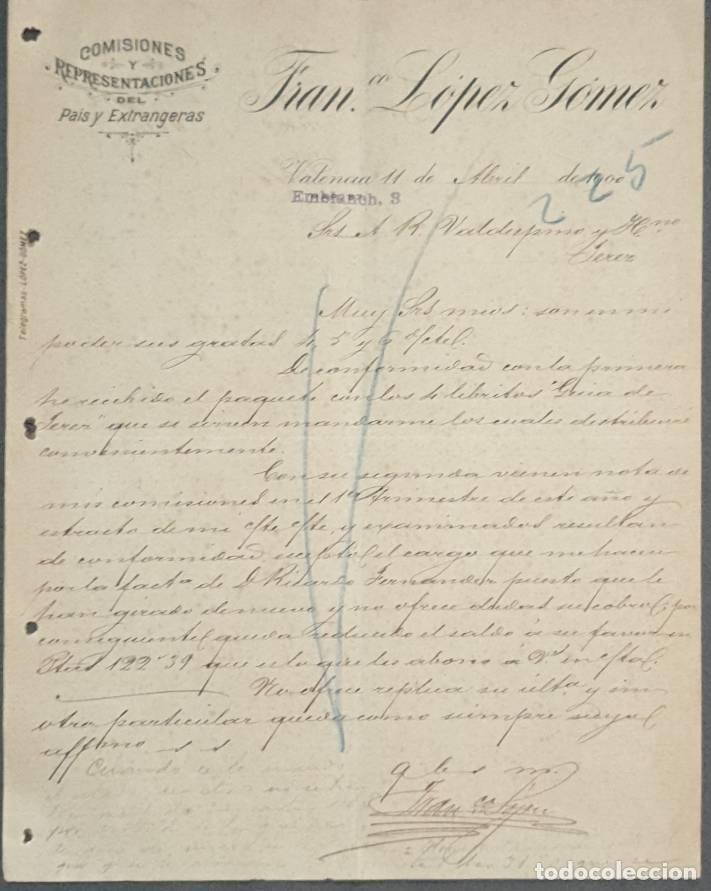 COMISIONES
Y
REPRESENTACIONES
DEL
País y Extrangeras
Fran.co López Gómez
Valencia 11 de Abril de 1900
225
Embianch, 3
Srs A. R. Valdespino y Hno
Jerez
Telegramas LOPEZ
Muy Srs mios: son en mi
poder sus gratas 4, 5 y 6 del
De conformidad con la primera
he recibido el paquete con los libritos "Guia de
Jerez" que se sirven mandarme los cuales distribuiré
convenientemente.
Con su segunda vienen nota de
mis comisiones en el 1er trimestre de este año y
estracto de mi c/te c/te, y examinados resultan
de conformidad escepto el cargo que me hacen
por la facta de D Ricardo Fernandez puesto que le
han girado de nuevo y no ofrece dudas su cobro, por
consiguiente queda reducido el saldo á su favor en
Ptas 122'39 que
No ofrece replica su ulta y sin
otro particular queda como siempre suyo
affmo s s
q b s m
Fran co López
Cuando
todocoleccion